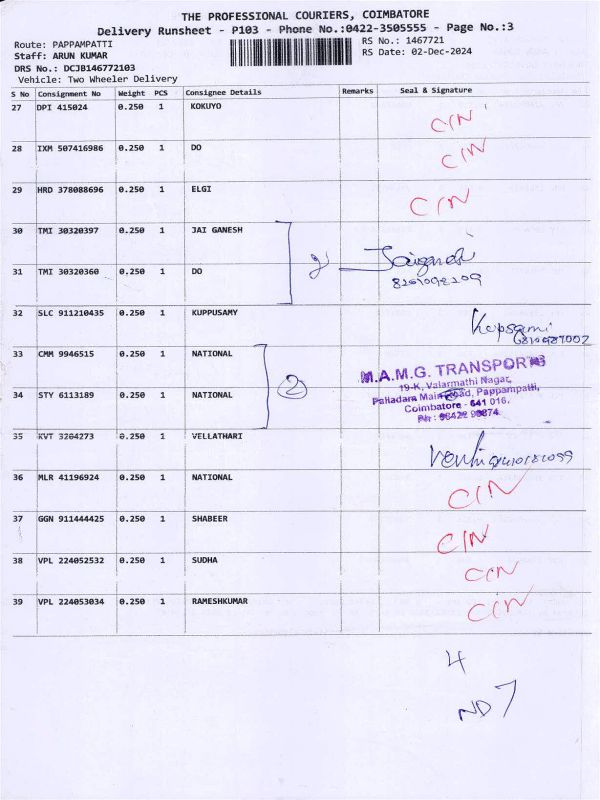 THE PROFESSIONAL COURIERS, COIMBATORE
Delivery Runsheet - P103 - Phone No.:0422-3505555 - Page No.:3
Route: PAPPAMPATTI RS No.: 1467721
Staff: ARUN KUMAR RS Date: 02-Dec-2024
DRS No.: DCJB146772103
Vehicle: Two Wheeler Delivery
S No Consignment No Weight PCS Consignee Details Remarks Seal & Signature
27 DPI 415024 0.250 1 KOKUYO CIN
28 IXM 507416986 0.250 1 DO CIN
29 HRD 378088696 0.250 1 ELGI CIN
30 TMI 30320397 0.250 1 JAI GANESH
31 TMI 30320360 0.250 1 DO
32 SLC 911210435 0.250 1 KUPPUSAMY
33 CMM 9946515 0.250 1 NATIONAL
M.A.M.G. TRANSPORTS
19-K, Valarmathi Nagar,
34 STY 6113189 0.250 1 NATIONAL 2
Palladam Main Road, Pappampatti,
Coimbatore - 641 016.
35 KVT 3204273 0.250 1 VELLATHARI
36 MLR 41196924 0.250 1 NATIONAL CIN
37 GGN 911444425 0.250 1 SHABEER CIN
38 VPL 224052532 0.250 1 SUDHA CIN
39 VPL 224053034 0.250 1 RAMESHKUMAR CIN
4
ND 7